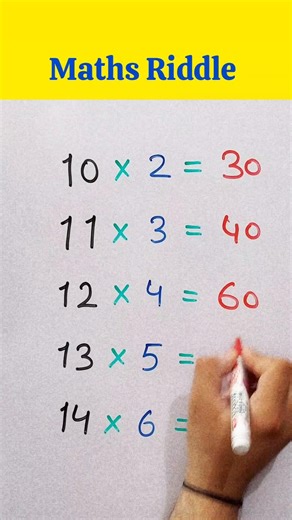 Maths Riddle
10 × 2 = 30
11 × 3 = 40
12 × 4 = 60
13 × 5 =
14 × 6 =